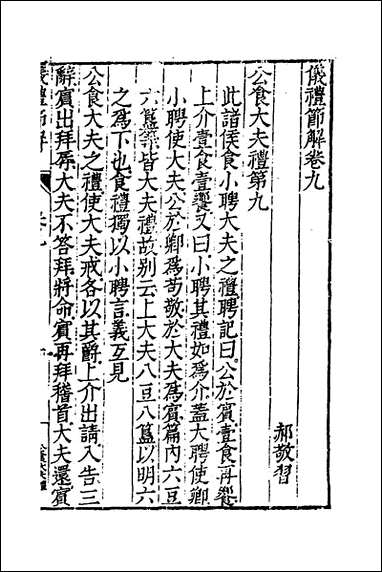 儀禮節解卷九
郝敬習
公食大夫禮第九
此諸侯食小聘大夫之禮聘記曰公於賓壹食再饗
上介壹食壹饗又曰小聘其禮如爲介蓋大聘使卿
小聘使大夫公於卿爲苟敬於大夫爲賓篇內六豆
六簋幣皆大夫禮故別云上大夫八豆八簋以明六
之爲下也食禮獨以小聘言義互見
公食大夫之禮使大夫戒各以其爵上介出請入告三
辭賓出拜辱大夫不答拜將命賓再拜稽首大夫還賓
儀禮節解